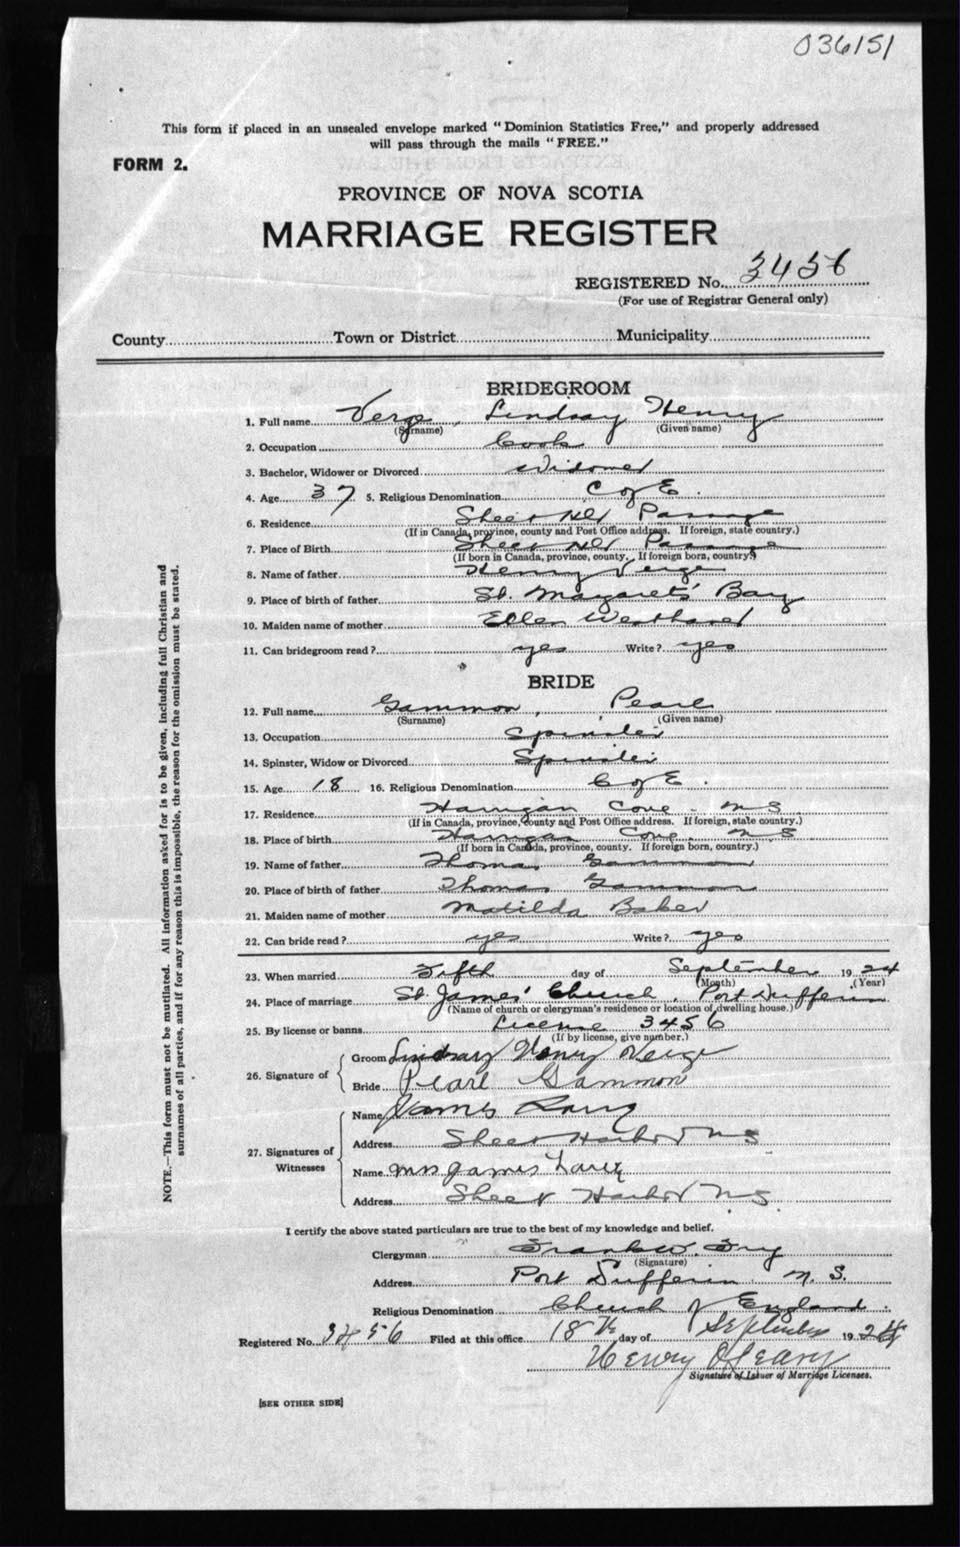 036151
This form if placed in an unsealed envelope marked "Dominion Statistics Free," and properly addressed
will pass through the mails "FREE."
FORM 2.
PROVINCE OF NOVA SCOTIA
MARRIAGE REGISTER
REGISTERED No. 3456
(For use of Registrar General only)
County Town or District Municipality
BRIDEGROOM
1. Full name Verge, Lindsay Henry
(Surname) (Given name)
2. Occupation Cook
3. Bachelor, Widower or Divorced Widower
4. Age 37 5. Religious Denomination C of E.
6. Residence Sheet Hbr Passage
(If in Canada, province, county and Post Office address. If foreign, state country.)
7. Place of Birth Sheet Hbr Passage
(If born in Canada, province, county. If foreign born, country.)
8. Name of father Henry Verge
9. Place of birth of father St. Margarets Bay
10. Maiden name of mother Ellen
11. Can bridegroom read? yes Write? yes
BRIDE
12. Full name Gammon, Pearl
(Surname) (Given name)
13. Occupation Spinster
14. Spinster, Widow or Divorced Spinster
15. Age 18 16. Religious Denomination C of E.
17. Residence Harrigan Cove. N S
(If in Canada, province, county and Post Office address. If foreign, state country.)
18. Place of birth Harrigan Cove. N S
(If born in Canada, province, county. If foreign born, country.)
19. Name of father Thomas Gammon
20. Place of birth of father Thomas Gammon
21. Maiden name of mother Matilda Baker
22. Can bride read? yes Write? yes
23. When married Fifth day of September 1924
(Month) (Year)
24. Place of marriage St. James' Church, Port Dufferin
(Name of church or clergyman's residence or location of dwelling house.)
25. By license or banns License 3456
(If by license, give number.)
26. Signature of
Groom Lindsay Henry Verge
Bride Pearl Gammon
27. Signatures of Witnesses
Name James
Address Sheet Harbor N S
Name Mrs James
Address Sheet Harbor N.S.
I certify the above stated particulars are true to the best of my knowledge and belief.
Clergyman Frank W.
(Signature)
Address Port Dufferin N. S.
Religious Denomination Church of England.
Registered No. 3456 Filed at this office 18th day of September 1924
Henry O'Leary
Signature of Issuer of Marriage Licenses.
[SEE OTHER SIDE]
NOTE.—This form must not be mutilated. All information asked for is to be given, including full Christian and
surnames of all parties, and if for any reason this is impossible, the reason for the omission must be stated.